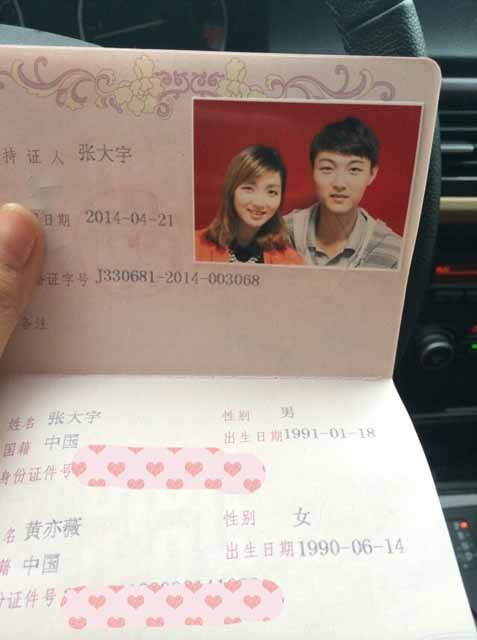 持证人 张大宇
日期 2014-04-21
证字号 J330681-2014-003068
备注
姓名 张大宇 性别 男
国籍 中国 出生日期 1991-01-18
身份证件号
名 黄亦薇 性别 女
籍 中国 出生日期 1990-06-14
份证件号